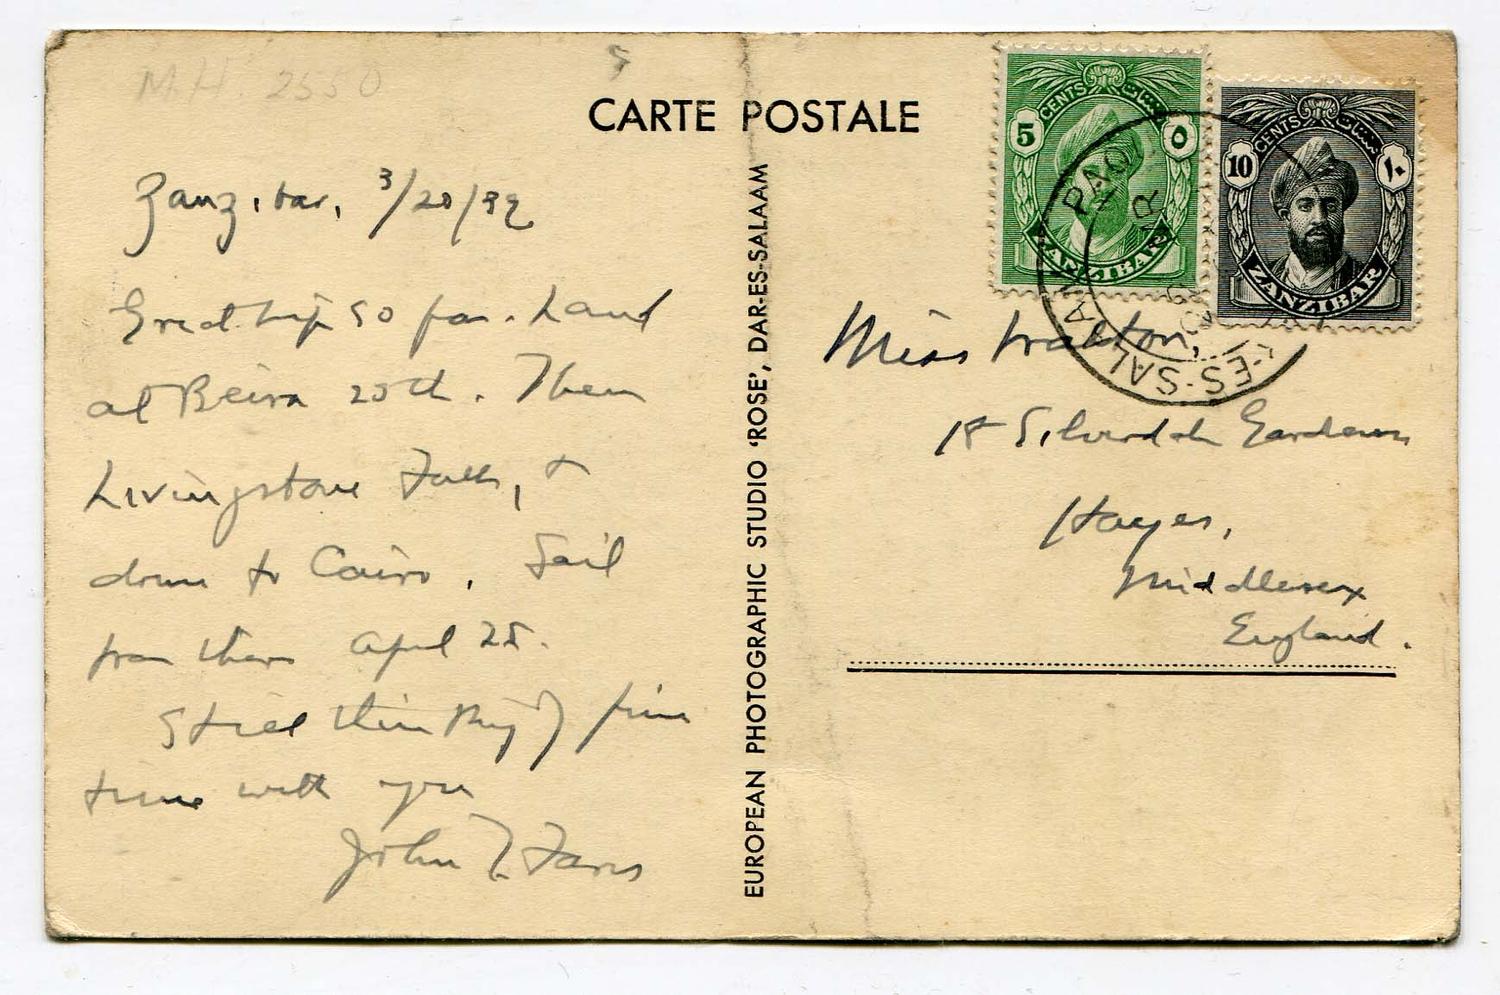 M.H. 2550
5
CARTE POSTALE
Zanzibar, 3/20/32
Great trip so far. Land
at Beira 25th. Then
Livingstone Falls, +
down to Cairo. Sail
from there April 25.
Still thinking of fine
time with you
John T. Faris
EUROPEAN PHOTOGRAPHIC STUDIO 'ROSE', DAR-ES-SALAAM
5 CENTS سنتات ٥
ZANZIBAR
10 CENTS سنتات ١٠
ZANZIBAR
-ES-SALAAM PAQ
Miss Walton,
Silverdale Gardens
Hayes,
Middlesex
England.